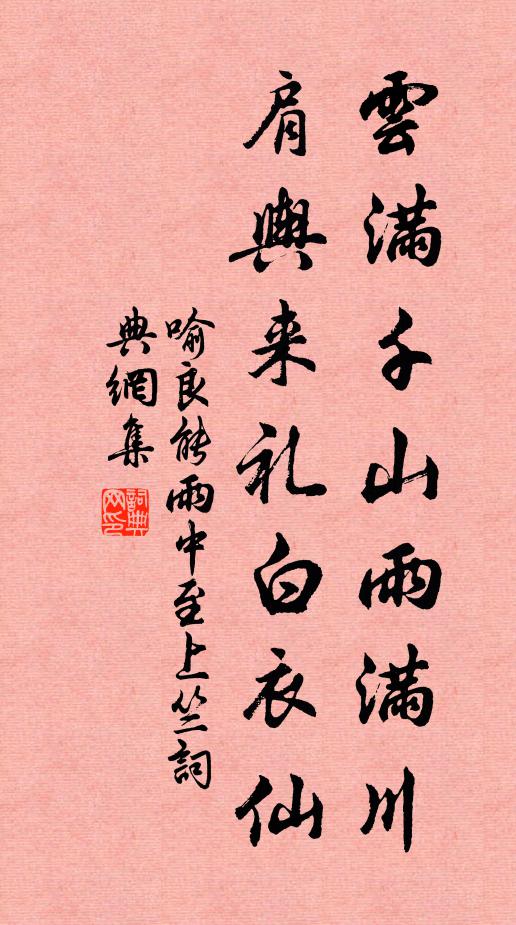 雲滿千山雨滿川
肩輿来礼白衣仙
喻良能雨中至上竺詞
典網集
詞典
網印